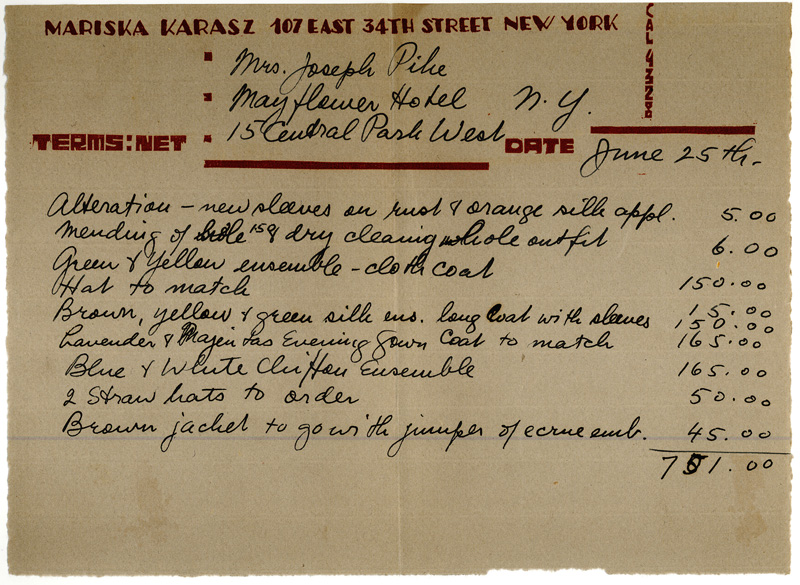 MARISKA KARASZ 107 EAST 34TH STREET NEW YORK
CAL 4328
Mrs. Joseph Pike
Mayflower Hotel N. Y.
15 Central Park West
TERMS: NET
DATE June 25th.
Alteration – new sleeves on rust & orange silk appl. 5.00
Mending of & dry cleaning whole outfit 6.00
Green & Yellow ensemble – cloth coat 150.00
Hat to match 15.00
Brown, yellow & green silk ens. long coat with sleeves 150.00
Lavender & Evening Gown Coat to match 165.00
Blue & White Chiffon Ensemble 165.00
2 Straw hats to order 50.00
Brown jacket to go with jumper of ecrue emb. 45.00
751.00